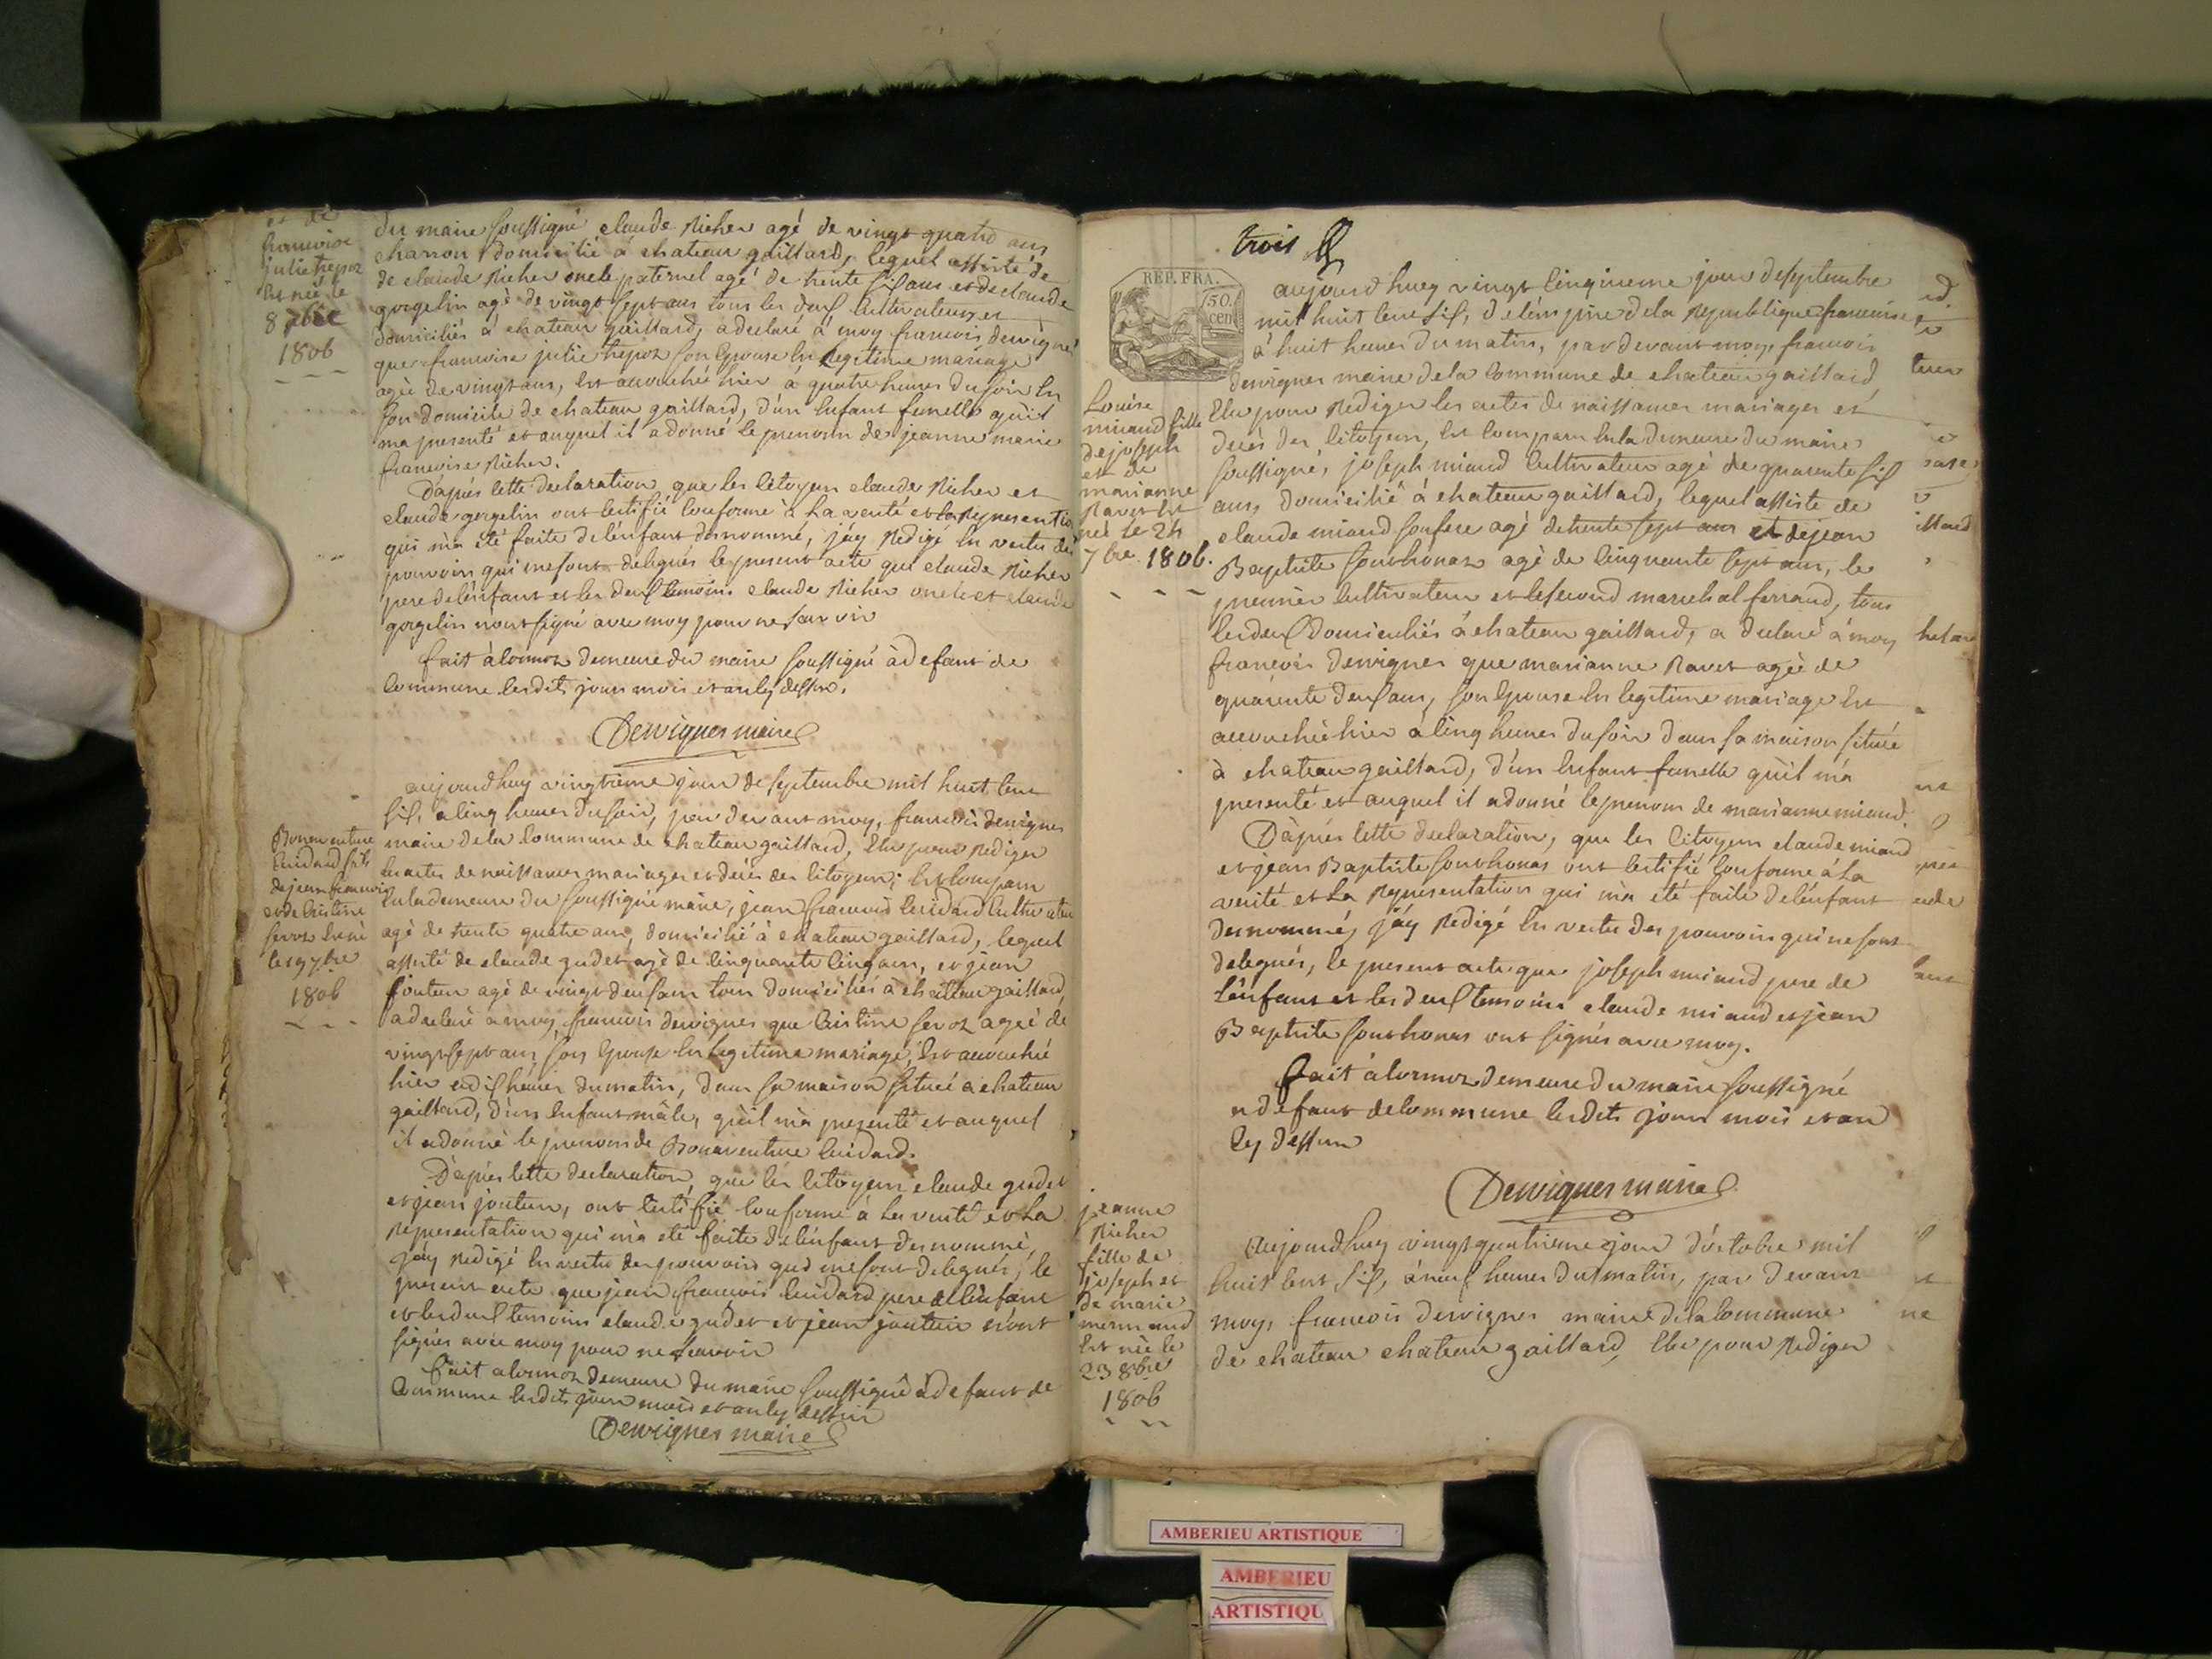 et de
francoise
julie trepoz
est neé le
8 7bre
1806
du maire soussigné claude Richer agé de vingt quatre ans
charron domicilié à chateau gaillard, lequel assisté de
de claude Richer oncle paternel agé de trente six ans et de claude
gorgelin agé de vingt sept ans tous les deux cultivateurs et
domiciliés à chateau gaillard, a declaré à moy francois dervignes
que francoise julie trepoz son Epouse En legitime mariage
agée de vingt ans, Est accouchée hier à quatre heures du soir En
son domicile de chateau gaillard, d'un Enfant femelle qu'il
ma presenté et auquel il a donné le prenom de jeanne marie
francoise Richer.
D'après cette declaration que les citoyens claude Richer et
claude gorgelin ont certifié conforme à La verité et La Representation
qui m'a été faite de l'énfant denommé, j'áy Redigé En vertu des
pouvoirs qui me sont delegués le present acte que claude Richer
pere de lénfant et les deux temoins claude Richer oncle et claude
gorgelin n'ont signé avec moy pour ne savoir
fait à cormoz demeure du maire soussigné à defaut de
Commune lesdits jour mois et an cy dessus.
Dervignes maire
Bonaventure
Cuidard fils
de jean francois
et de Cristine
servoz Est né
le 19 7bre
1806
aujourdhuy vingtieme jour de septembre mil huit cent
six, a cinq heures du soir, par devant moy, francois dervignes
maire de la Commune de chateau gaillard, Elu pour Rediger
les actes de naissances mariages et decès des citoyens; Est comparu
En la demeure du soussigné maire, jean francois Cuidard Cultivateur
agé de trente quatre ans, domicilié à chateau gaillard, lequel
assisté de claude gudet agé de cinquante cinq ans, et jean
jouteur agé de vingt deux ans tous domiciliés à chateau gaillard
a declaré a moy francois dervignes que Cristine servoz ageé de
vingt sept ans, son Epouse En legitime mariage, Est accouchée
hier a dix heures du matin, dans sa maison située a chateau
gaillard, d'un Enfant mâle, qu'il m'a presenté et auquel
il a donné le prenom de Bonaventure Cuidard.
D'après cette declaration, que les citoyens claude gudet
et jean jouteur, ont certifié conforme à La verité et La
Representation qui m'a été faite de lénfant denommé,
j'áy Redigé En vertu des pouvoirs qui me sont delegués, le
present acte que jean francois Cuidard pere de lénfant
et les deux temoins claude gudet et jean jouteur n'ont
signés avec moy pour ne savoir
fait a cormoz demeure du maire soussigné à defaut de
Commune lesdits jour mois et an cy dessus
Dervignes maire
trois
REP. FRA.
50.
cen
Louise
miand fille
de joseph
et de
marianne
Ravet Est
neé Le 24
7bre 1806.
aujourdhuy vingt cinquieme jour de septembre
mil huit cent six, de lémpire de la Republique francoise
à huit heures du matin, par devant moy, francois
dervignes maire de la Commune de chateau gaillard
Elu pour Rediger les actes de naissances mariages et
decès des citoyens, Est comparu En la demeure du maire
soussigné, joseph miand Cultivateur agé de quarente six
ans, domicilié à chateau gaillard, lequel assisté de
claude miand son frere agé de trente sept ans et de jean
Baptiste southonax agé de cinquante sept ans, le
premier cultivateur et le second marechal ferrand, tous
les deux domiciliés à chateau gaillard, a declaré à moy
francois dervignes que marianne Ravet agée de
quarente deux ans, son Epouse En legitime mariage Est
accouchée hier à cinq heures du soir dans sa maison située
à chateau gaillard, d'un Enfant femelle qu'il m'a
presenté et auquel il a donné le prenom de marianne miand
D'après cette declaration, que les citoyens claude miand
et jean Baptiste southonax ont certifié conforme à La
verité et La Representation qui m'a été faite de lénfant
denommé, j'áy Redigé En vertu des pouvoirs qui me sont
delegués, le present acte que joseph miand pere de
lénfant et les deux temoins claude miand et jean
Baptiste southonax ont signés avec moy.
fait à cormoz demeure du maire soussigné
a defaut de commune lesdits jour mois et an
cy dessus
Dervignes maire
jeanne
Richer
fille de
joseph et
de marie
mermand
Est née le
23 8bre
1806
aujourdhuy vingt quatrieme jour d'octobre mil
huit cent six, à neuf heures du matin, par devant
moy, francois dervignes maire de la Commune
de chateau chateau gaillard, Elu pour Rediger
AMBERIEU ARTISTIQUE
AMBERIEU
ARTISTIQU